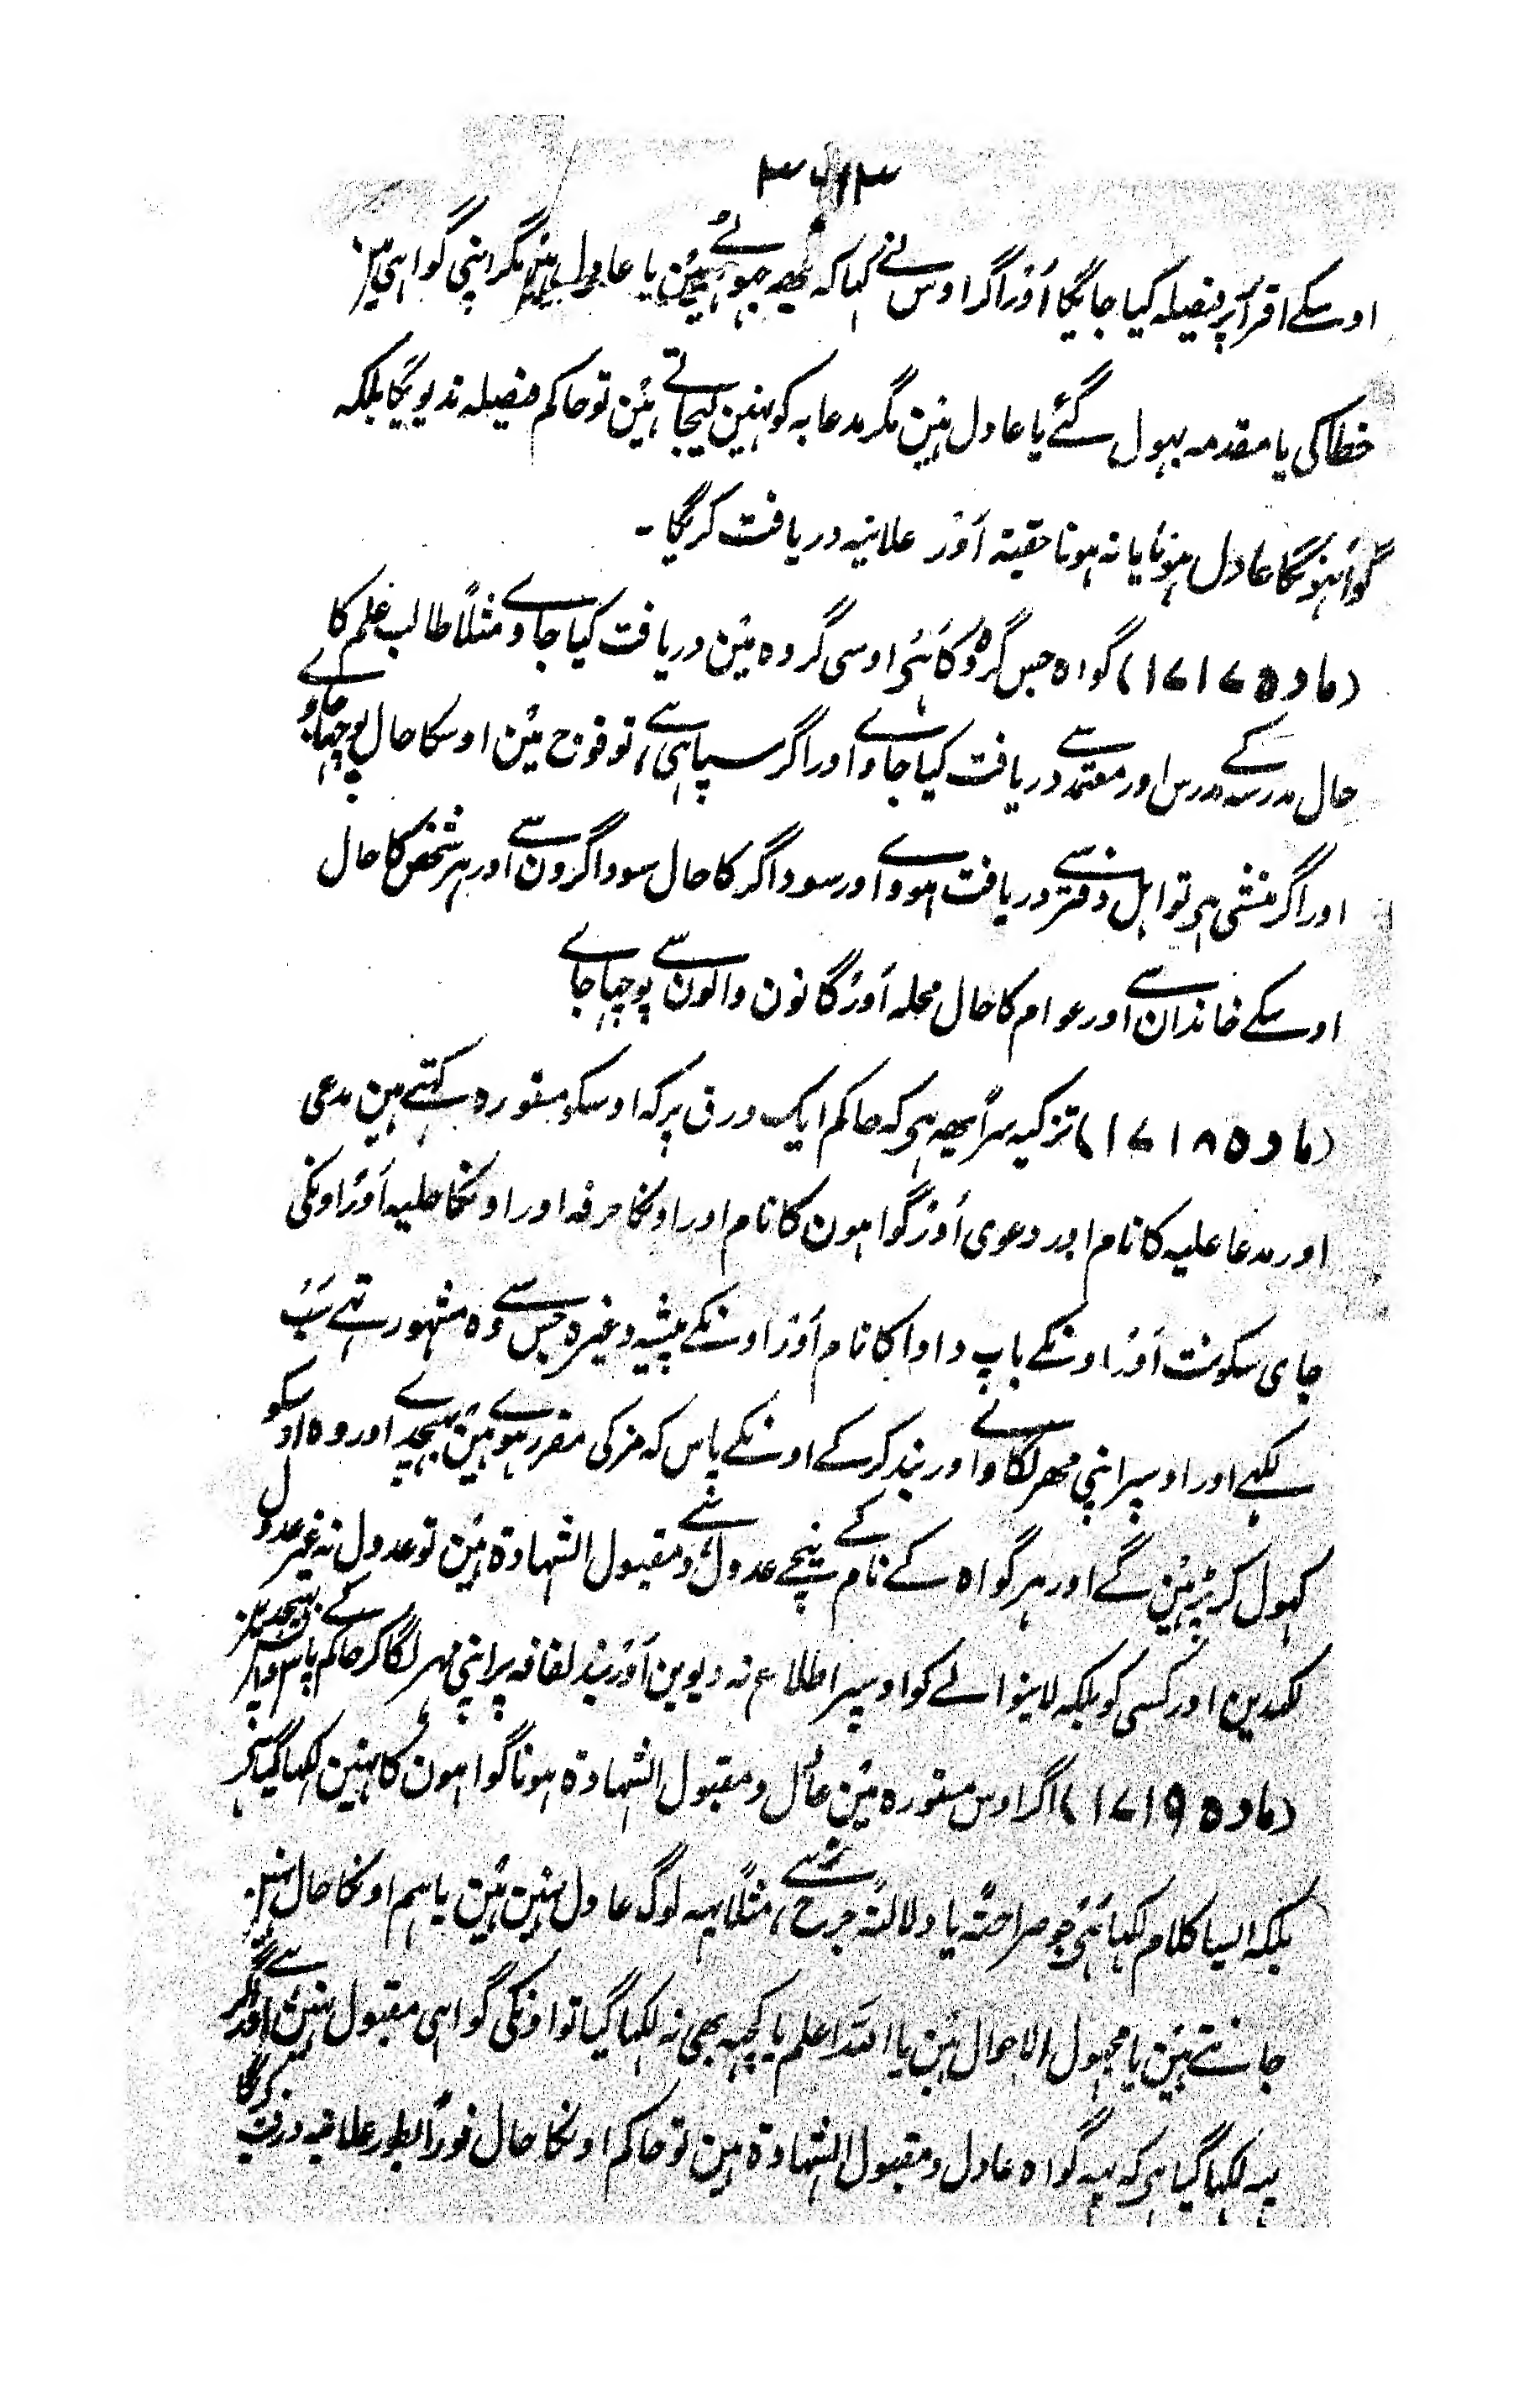 ۳۱۳
اوسکے اقرار پر فیصلہ کیا جائیگا اور اگر اوس نے کہا کہ یہہ جھوٹے ہین یا عادل ہین مگر اپنی گواہی مین
خطا کی یا مقدمہ بہول گئے یا عادل ہین مگر مدعا بہ کو نہین پہچانتے ہین تو حاکم فیصلہ ندیویگا بلکہ
گواہونکا عادل ہونا یا نہ ہونا خفیتہ اور علانیہ دریافت کریگا ۔
(مادہ ۱۷۱۷) گواہ جس گروہ کا ہی اوسی گروہ مین دریافت کیا جاوے مثلاً طالب علم کا
حال مدرسہ کے مدرس اور معتمد سے دریافت کیا جاوے اور اگر سپاہی ہے تو فوج مین اوسکا حال پوچہا جاوے
اور اگر منشی ہی تو اہل دفتر سے دریافت ہووے اور سوداگر کا حال سوداگرون سے اور ہر شخص کا حال
اوسکے خاندان سے اور عوام کا حال محلہ اور گانون والون سے پوچہا جاے
(مادہ ۱۷۱۸) تزکیہ سراً یہہ ہی کہ حاکم ایک ورق پر کہ اوسکو مستورہ کہتے ہین مدعی
اور مدعا علیہ کا نام اور دعوی اور گواہون کا نام اور اونکا حرفہ اور اونکا حلیہ اور اونکی
جای سکونت اور اونکے باپ دادا کا نام اور اونکے پیشہ وغیرہ جس سے وہ مشہور تہے سب
لکہے اور اوسپر اپنی مہر لگاوے اور بند کرکے اونکے پاس کہ مزکی مقرر ہوے ہین بہیجدے اور وہ اوسکو
کہول کر پڑہین گے اور ہر گواہ کے نام کے نیچے عدول و مقبول الشہادۃ ہین تو عدول نہ غیر عدول
لکہدین اور کسی کو بلکہ لانیوالے کو اوسپر اطلاع نہ دیوین اور بند لفافہ پر اپنی مہر لگا کر حاکم کے پاس واپس بہیجدین
(مادہ ۱۷۱۹) اگر اوس مستورہ مین عادل و مقبول الشہادۃ ہونا گواہون کا نہین لکہا گیا ہی
بلکہ ایسا کلام لکہا ہی جو صراحتہ یا دلالتہ جرح ہے مثلاً یہہ لوگ عادل نہین ہین یا ہم اونکا حال نہین
جانتے ہین یا مجہول الاحوال ہین یا اللہ اعلم یا کچہہ بھی نہ لکہا گیا تو اونکی گواہی مقبول نہین ہے اور اگر
یہ لکہا گیا ہی کہ یہہ گواہ عادل و مقبول الشہادۃ ہین تو حاکم اونکا حال فوراً بطور علانیہ دریافت کریگا